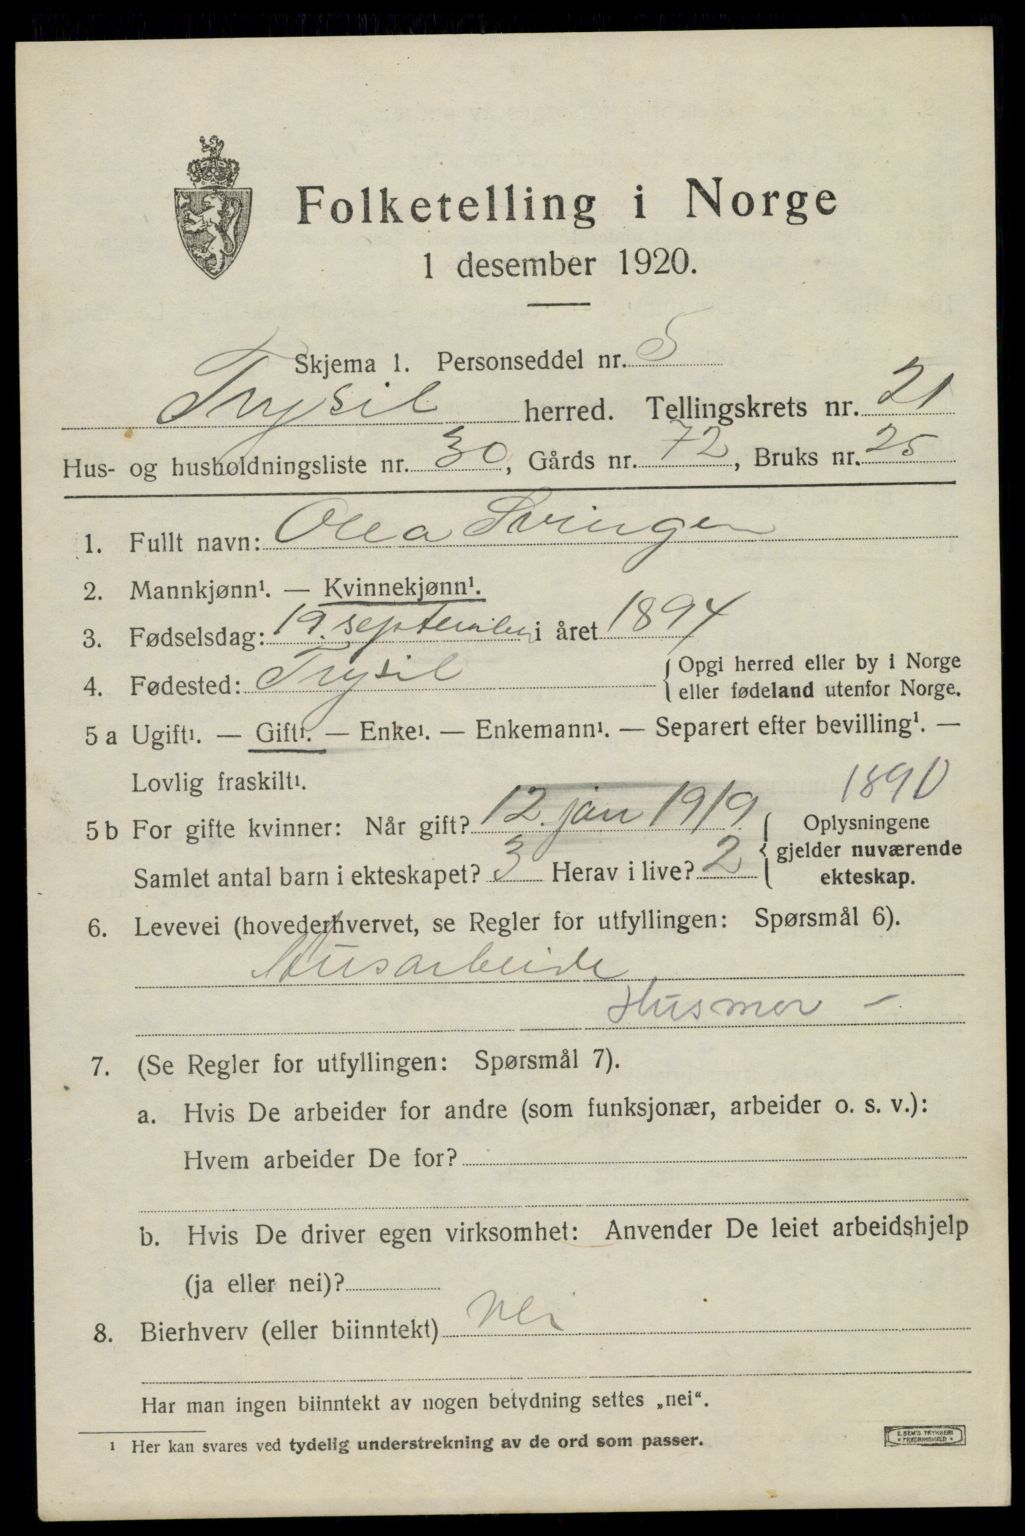 Folketelling i Norge
1 desember 1920.
Skjema 1. Personseddel nr. 5
Trysil herred. Tellingskrets nr. 21
Hus- og husholdningsliste nr. 30, Gårds nr. 72, Bruks nr. 25
1. Fullt navn: Olea Svingen
2. Mannkjønn¹. — Kvinnekjønn¹.
3. Fødselsdag: 19. september i året 1894
4. Fødested: Trysil { Opgi herred eller by i Norge
eller fødeland utenfor Norge.
5 a Ugift¹. — Gift¹. — Enke¹. — Enkemann¹. — Separert efter bevilling¹. —
Lovlig fraskilt¹.
5 b For gifte kvinner: Når gift? 12. jan 1919. { Oplysningene
gjelder nuværende
ekteskap.
Samlet antal barn i ekteskapet? 3 Herav i live? 2
6. Levevei (hovederhvervet, se Regler for utfyllingen: Spørsmål 6).
Husarbeide
Husmor —
7. (Se Regler for utfyllingen: Spørsmål 7).
a. Hvis De arbeider for andre (som funksjonær, arbeider o. s. v.):
Hvem arbeider De for?
b. Hvis De driver egen virksomhet: Anvender De leiet arbeidshjelp
(ja eller nei)?
8. Bierhverv (eller biinntekt) Nei
Har man ingen biinntekt av nogen betydning settes „nei“.
¹ Her kan svares ved tydelig understrekning av de ord som passer.